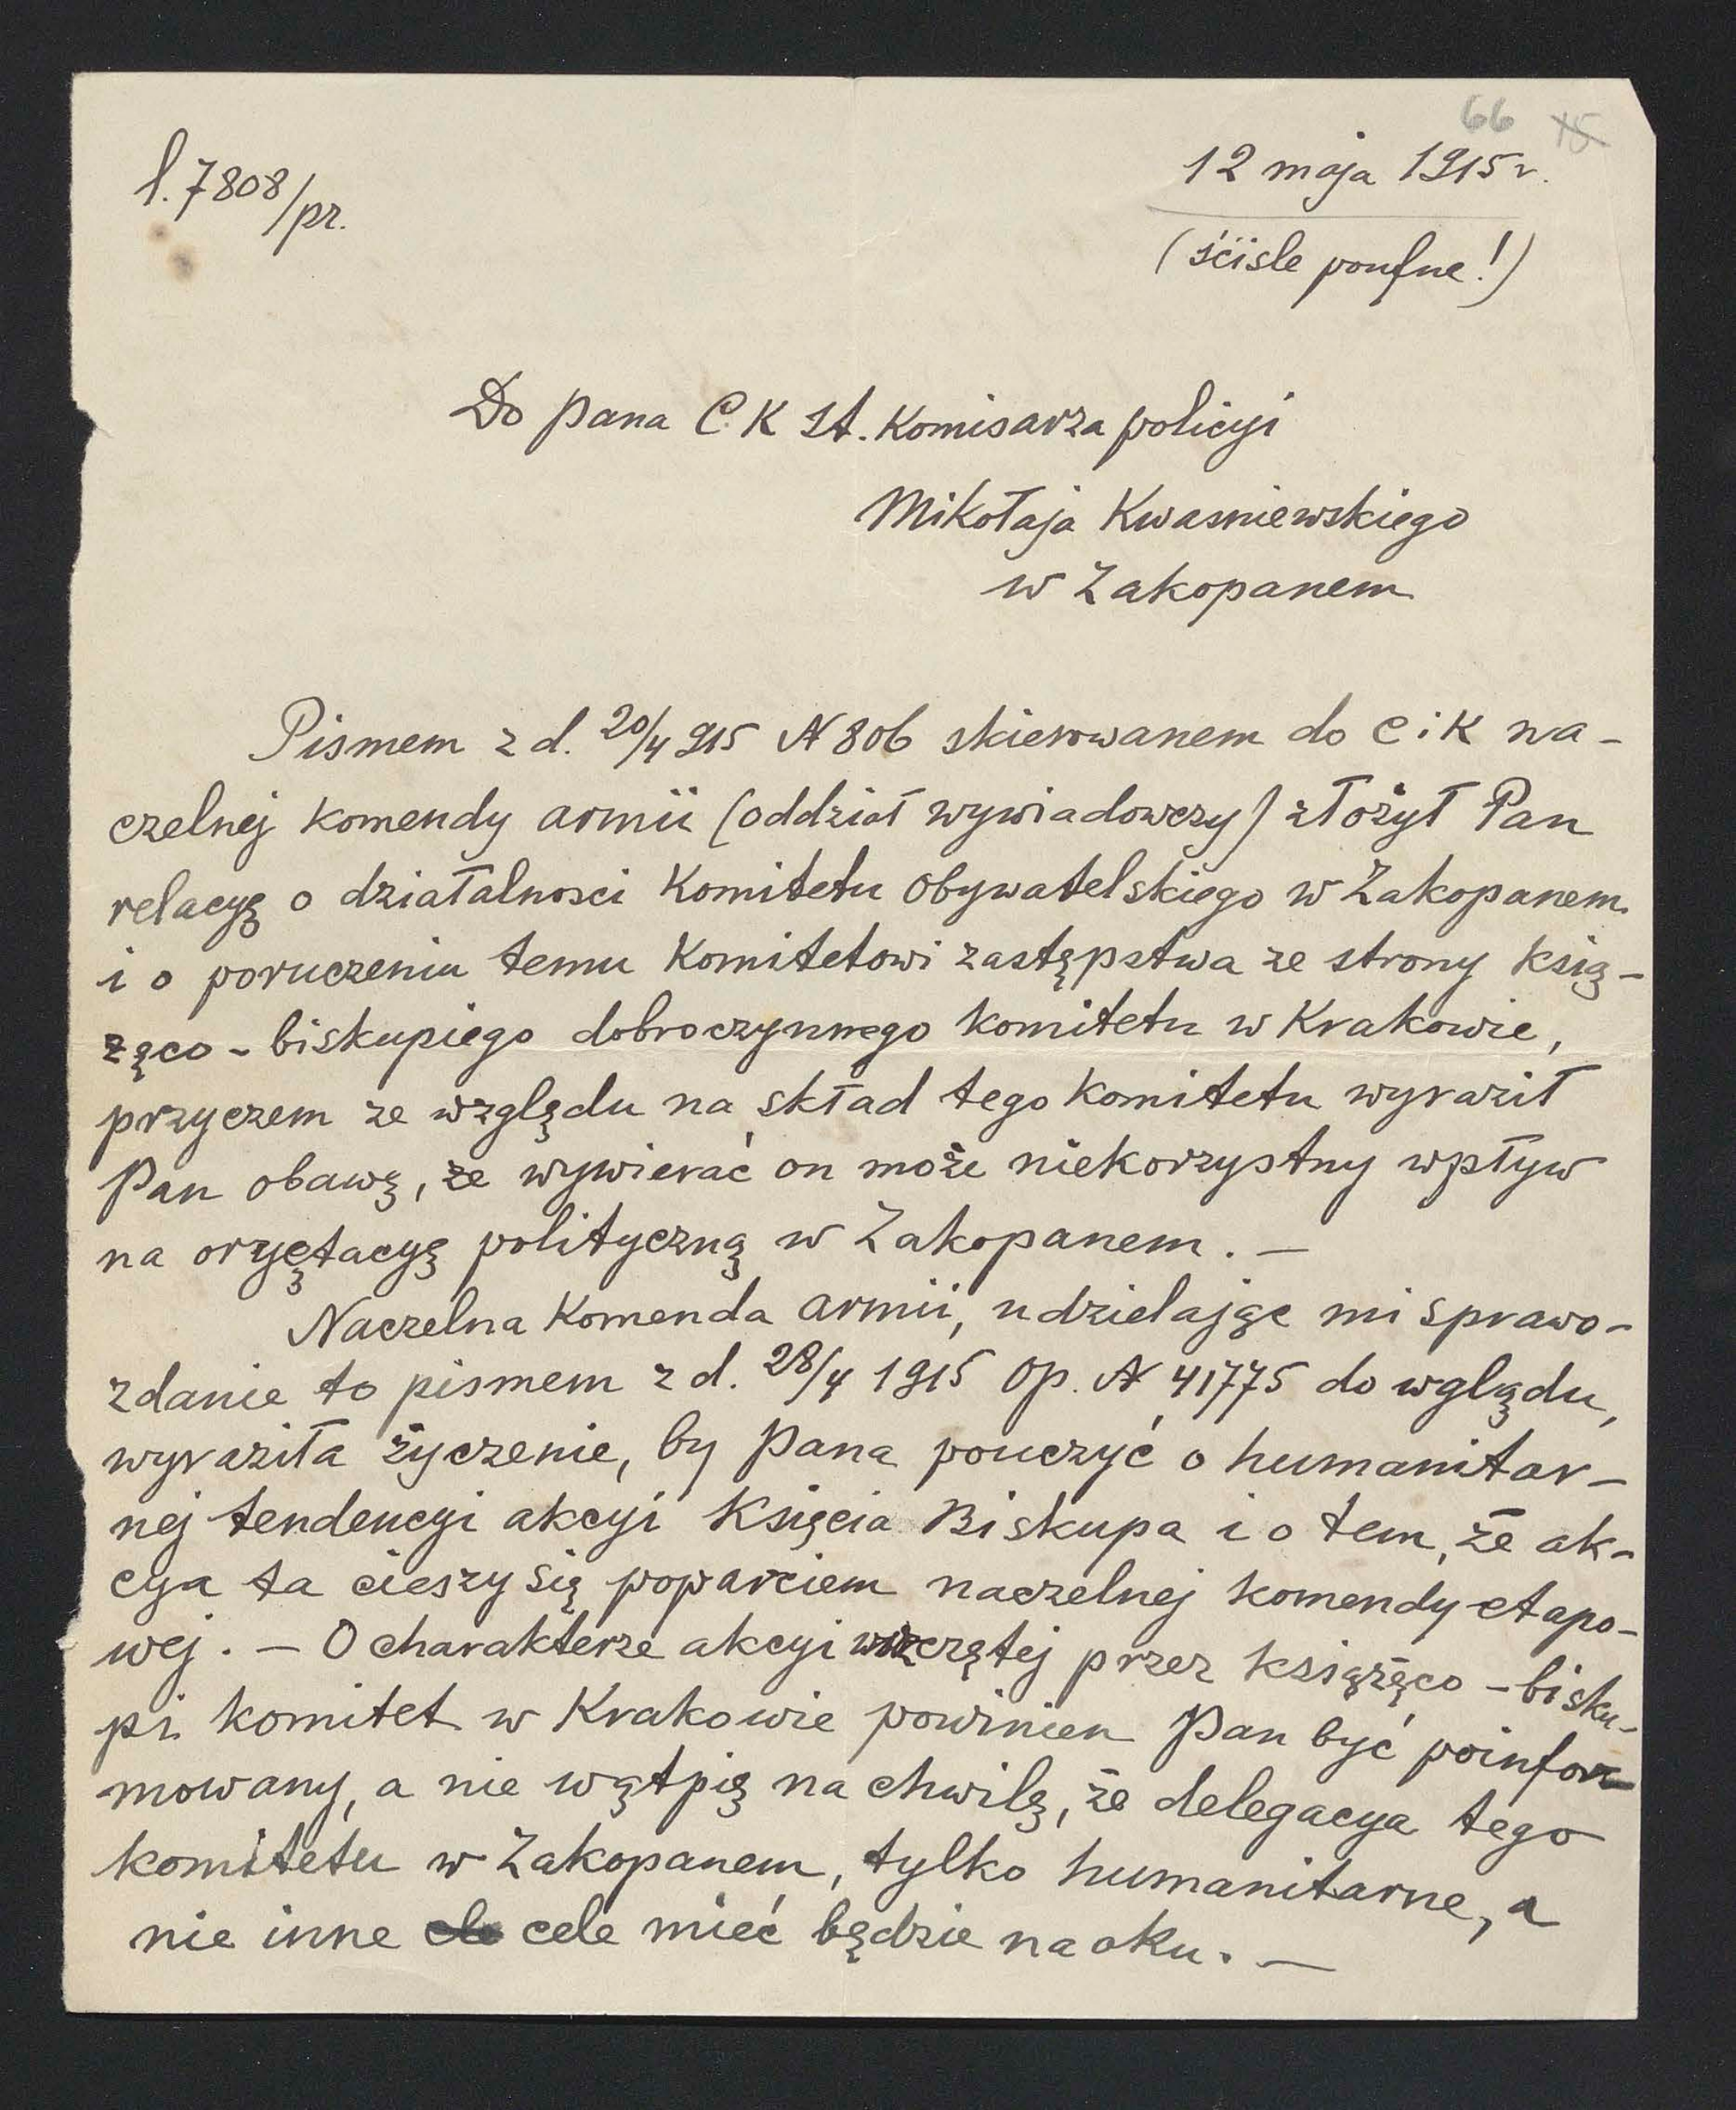 66 15
l. 7808/pr.
12 maja 1915 r.
(ściśle poufne!)
Do Pana C. K st. Komisarza policyi
Mikołaja Kwasniewskiego
w Zakopanem
Pismem z d. 20/4 915 N 806 skierowanem do C i K na-
czelnej komendy armii (oddział wywiadowczy) złożył Pan
relacyę o działalnosci Komitetu Obywatelskiego w Zakopanem
i o poruczeniu temu Komitetowi zastępstwa ze strony ksią-
żęco - biskupiego dobroczynnego komitetu w Krakowie,
przyczem ze względu na skład tego Komitetu wyraził
Pan obawę, że wywierać on może niekorzystny wpływ
na oryętacyę polityczną w Zakopanem. —
Naczelna Komenda armii, udzielając mi sprawo-
zdanie to pismem z d. 28/4 1915 Op. N 41775 do wglądu,
wyraziła życzenie, by Pana pouczyć o humanitar-
nej tendencyi akcyi Księcia Biskupa i o tem, że ak-
cya ta cieszy się poparciem naczelnej komendy etapo-
wej. — O charakterze akcyi wszczętej przez książęco - bisku-
pi komitet w Krakowie powinien Pan być poinfor-
mowany, a nie wątpię na chwilę, że delegacya tego
komitetu w Zakopanem, tylko humanitarne, a
nie inne cele mieć będzie na oku. —